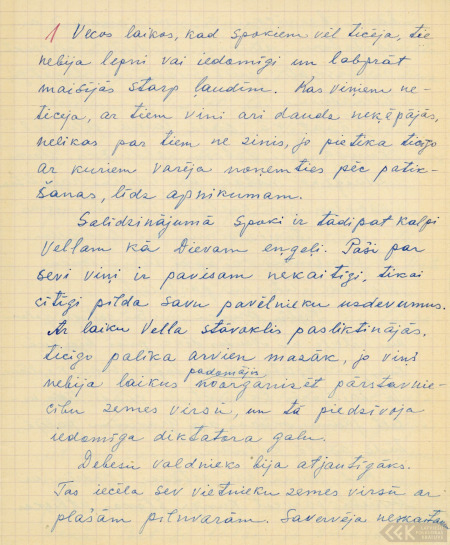 1 Vecos laikos, kad spokiem vēl ticēja, tie
nebija lepni vai iedomīgi un labprāt
maisījās starp ļaudīm. Kas viņiem ne-
ticēja, ar tiem viņi arī daudz neķēpājās,
nelikās par tiem ne zinis, jo pietika ticīgo
ar kuriem varēja noņemties pēc patik-
šanas, līdz apnikumam.
Salīdzinājumā spoki ir tādi pat kalpi
Vellam kā Dievam eņģeļi. Paši par
sevi viņi ir pavisam nekaitīgi, tikai
cītīgi pilda savu pavēlnieku uzdevumus.
Ar laiku Vella stāvoklis pasliktinājās,
ticīgo palika arvien mazāk, jo viņš
nebija laikus padomājis noorganizēt pārstāvnie-
cību zemes virsū, un tā piedzīvoja
iedomīga diktatora galu.
Debesu valdnieks bija atjautīgāks.
Tas iecēla sev vietnieku zemes virsū ar
plašām pilnvarām. Savervēja